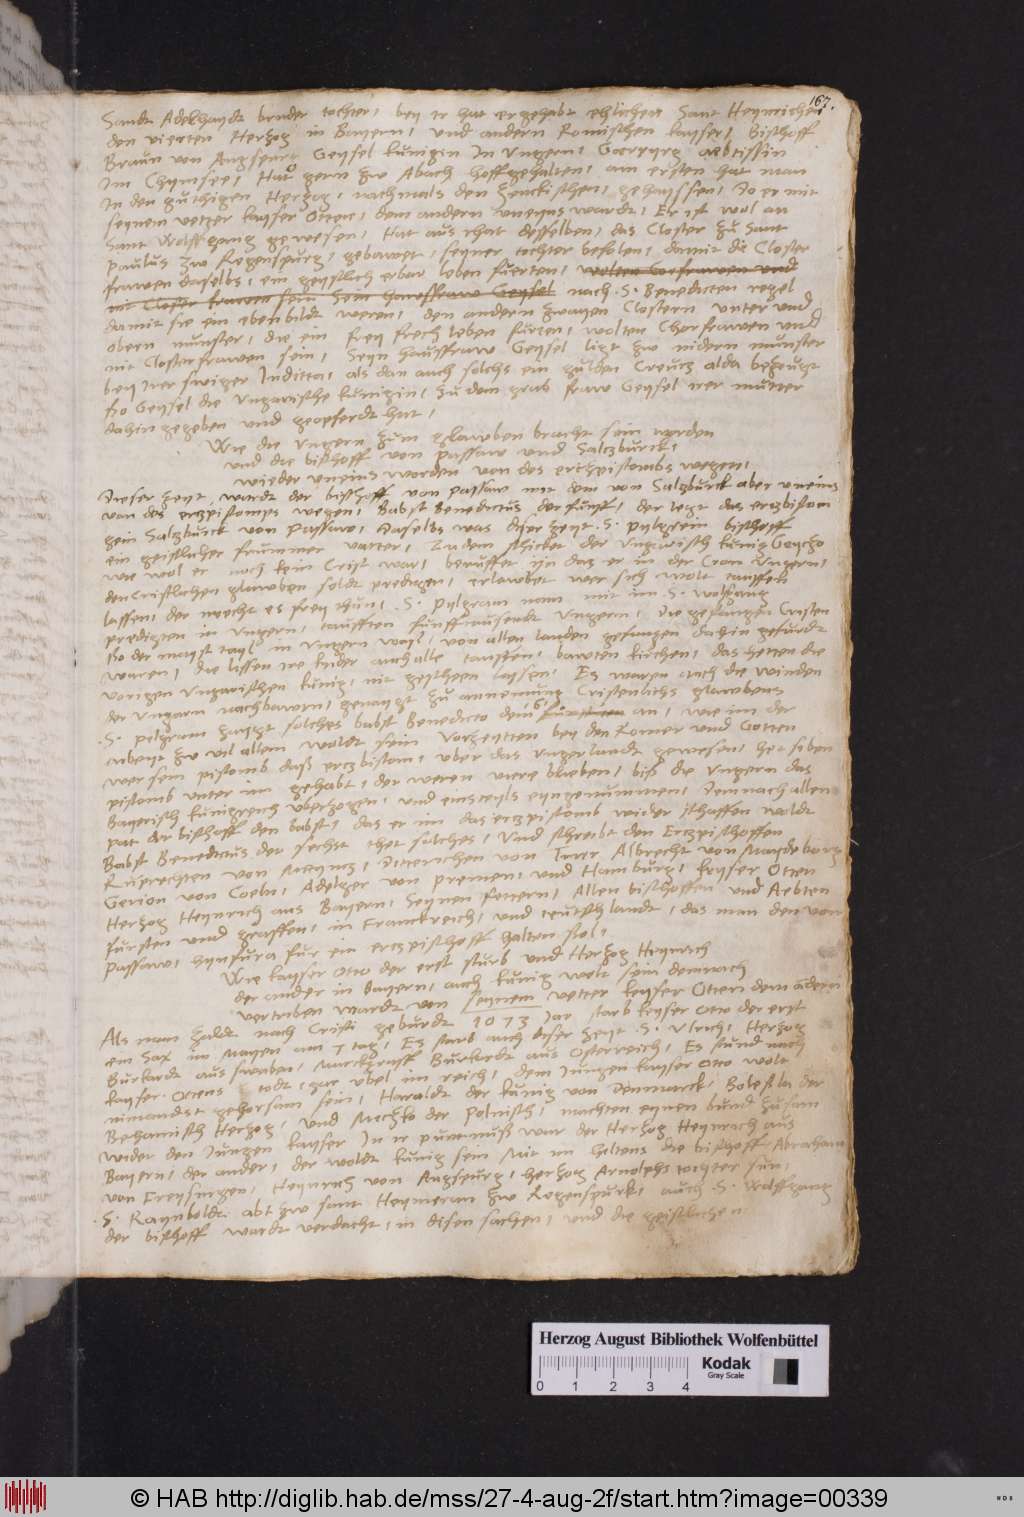 167.
Sandt Adelhaydt bruder tochter, bey ir hat er gehabt ehlichen Sant Heynrichen
den vierten Hertzog in Bayern, und andern Romischen kayser, Bisthoff
Braun von Augspurg Geysel kunigin In Ungern, aebtissin
Im Chymsee, Hat gern zw Abach hoffgehalten, am ersten hat man
In den guthigen Hertzog, nachmals den gehayssen, Do er mit
seynem vetter kayser Otten, dem andern uneyns wardt, Er ist wol an
Sant Wolffgang gewesen, Hat aus rhat desselben, das Closter zu Sant
Paulus zw Regenspurg, gebawet, seyner tochter befolen, damit die Closter
frawen daselbs, ein geystlich erbar leben fuerten, wolten Chorfrawen und
nit Closter frawen sein Sein hawsfraw Geysel nach .S. Benedicten regel
damit sie ein ebenbildt weren, den andern zwayen Clostern unter und
obern munster, die ein frey frech leben furten, wolten Chorfrawen und
nit Closterfrawen sein, Seyn hausffraw Geysel ligt zw nidern munster
bey irer swiger Inditta, als dan auch solchs ein gulden Creucz alda bezeugt
ßo Geysel die Ungarische kunigin, zu dem grab fraw Geysel irer mutter
dahin gegeben und geopferdt hat,
Wie die Ungern zum glawben bracht sein worden
und die bisthoff von passaw und Saltzburck,
wieder uneins worden von des ertzpistombs wegen,
Dieser zeyt, wardt der bisthoff von passaw mit dem von Saltzburck aber uneins
von des erczpistomps wegen, Babst Benedictus der funft, der legt das erczbistom
gein Saltzburck von passaw, Daselbs was diser zeyt .S. pylgrein bisthoff
ein geistlicher frummer vatter, Zu dem schicket der Ungrisch kunig Geycho
wie wol er noch kein Crist war, beruffet yn das er in der Cron Ungern,
den Cristlichen glawben soldt predigen, erlawbet wer sich wolt tauffen
lassen, der mecht es frey thun, .S. pylgram nam mit im .S. Wolfgang
predigten in Ungern, taufften funfftausendt Ungern, Die gefangen Cristen
ßo der mayst tayl in Ungern was, von allen landen gefangen dahin gefurdt
waren, die liessen ire kinder auch alle tauffen, bawten kirchen, das hetten die
vorigen Ungarischen kunig, nit gescheen lassen, Es waren auch die winden
der Ungarn nachbawern, genaygt zu annemung Cristenlichs glawbens
.S. pelgram zaygt solches babst Benedicto dem .6. an, wie im der
arbeyt zw vil allein woldt sein Vorzeytten bey den Romer und Gotten
wer sein pistomb daß erczbistom, uber das Ungerlandt gewesen, het siben
pistomb unter im gehabt, der weren viere blieben, biß die Ungern das
Bayerisch kunigreich uberzogen, und einsteyls eyngenummen, Demnach allen
pat der bisthoff den babst, das er im das erczpistomb wider schaffen woldt
Babst Benedictus der sechst thet solches, Und schreibt den Erczpisthoffen
Ruprechten von Meyncz, Ditterichen von Trier Albrecht von Maydeborg
Gerion von Coeln, Adelger von premen, und Hamburg, kayser Otten
Herzog Heynrich aus Bayern, Seynen fettern, Allen bisthoffen und Aebten
fursten und graffen, in Franckreich, und teutschlandt, das man den von
Passaw, hynfura fur ein erczpisthoff halten sol,
Wie kayser Otto der erst sturb und Hertzog Heynrich
der ander in Bayern, auch kunig wolt sein demnach
vertriben wardt von seynem vetter keyser Otten dem andern
Als man zaldt nach Cristi geburdt 1073 Jar starb keyser Otto der erst
ein Sax im Mayen am 7 tag, Es starb auch diser zeyt .S. Ulrich, Hertzog
Burkardt aus swaben, Marckgraff Burkardt aus Osterreich, Es stund nach
kayser Ottens todt, gar ubel im reich, dem Jungen kayser Otto wolt
nimandst gehorsam sein, Haraldt der kunig von Denmarck, Boleßla der
Behamisch Hertzog, und Mechko der Polnisch, machten eynen bund zusam
wider den Jungen kayser In pundtnuß war der Hertzog Heynrich aus
Bayern, der ander, der woldt kunig sein Mit im hiltens die bisthoff Abraham
von Freysingen, Heynrich von Augspurg, hertzog Arnolphs tochter sun,
.S. Raynboldt abt zw sant Heymeran zw Regenspurk, auch .S. Wolffgang
der bisthoff wardt verdacht, in disen sachen, und die geistlichen
Herzog August Bibliothek Wolfenbüttel
0 1 2 3 4
Kodak
Gray Scale
© HAB http://diglib.hab.de/mss/27-4-aug-2f/start.htm?image=00339